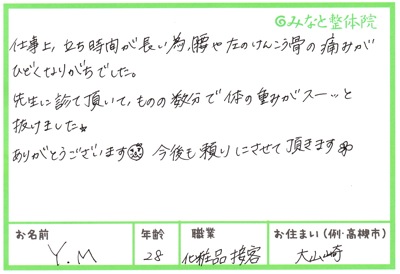 みなと整体院
仕事上、立ち時間が長い為、腰や左のけんこう骨の痛みが
ひどくなりがちでした。
先生に診て頂いて、ものの数分で体の重みがスーッと
抜けました
ありがとうございます 今後も頼りにさせて頂きます
お名前 年齢 職業 お住まい(例・高槻市)
Y.M 28 化粧品接客 大山崎